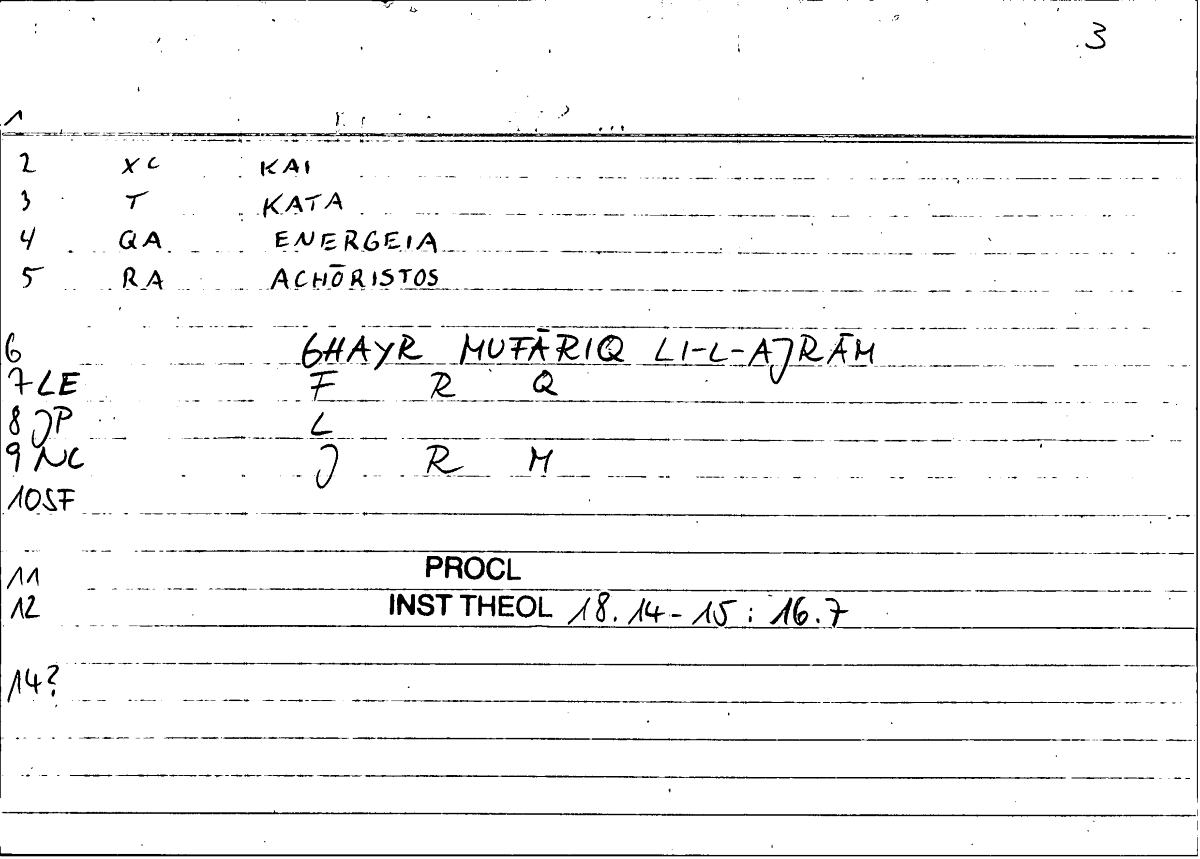 3
1
2 XC KAI
3 T KATA
4 QA ENERGEIA
5 RA ACHŌRISTOS
6 GHAYR MUFĀRIQ LI-L-AJRĀM
7 LE F R Q
8 JP L
9 NC J R M
10 SF
11 PROCL
12 INST THEOL 18.14-15 : 16.7
14?